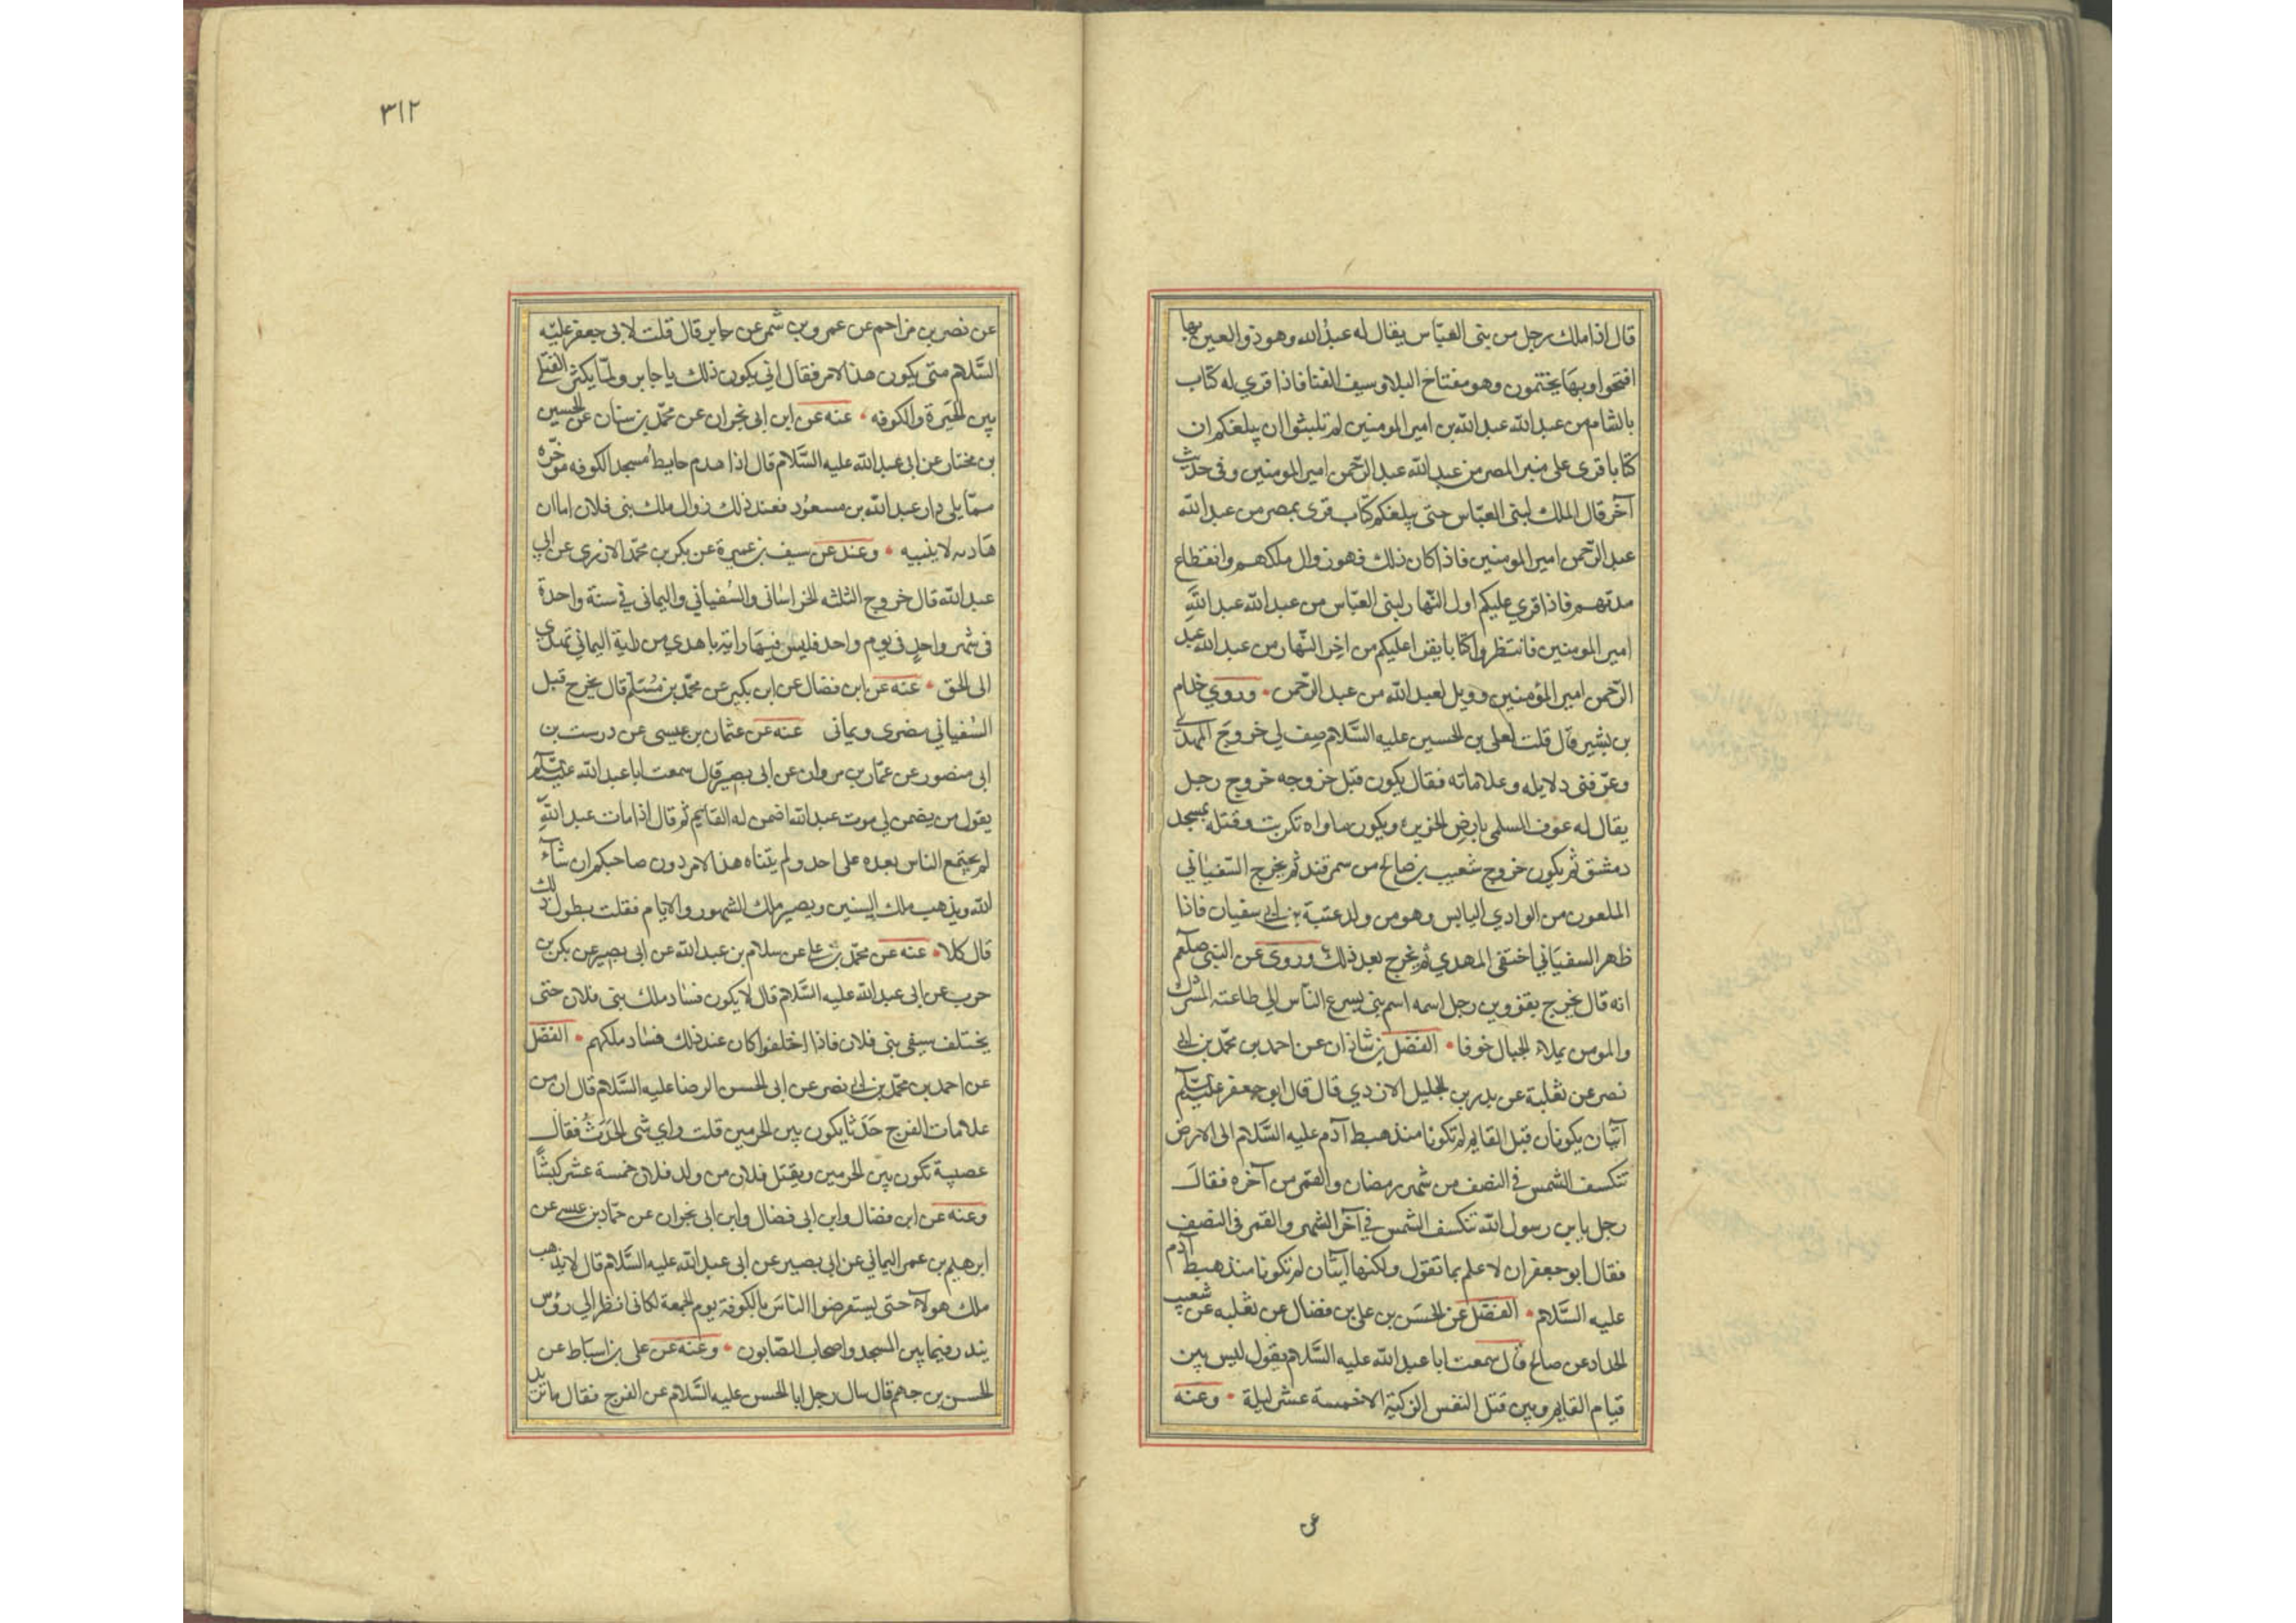 قال اذا ملك رجل من بنى العبّاس يقال له عبدُ الله وهو ذو العين بها
افتحوا وبهَا يختمون وهو مفتاح البلاء وسيف الفنا فاذا قرى له كتاب
بالشام من عبد الله عبد الله بن امير المومنين لم تلبثوا ان يبلغكم ان
كتابا قرى على منبر المصر من عبد الله عبد الرّحمن امير المومنين وفى حديث
آخر قال الملك لبنى العبّاس حتى يبلغكم كتاب قرى بمصر من عبد الله
عبد الرّحمن امير المومنين فاذا كان ذلك فهو زوال ملكهم وانقطاع
مدتهم فاذا قري عليكم اول النّهار لبنى العبّاس من عبد الله عبد اللهِ
امير المومنين فانتظروا كتابا يقرا عليكم من اخر النّهار من عبد الله عبد
الرّحمن امير المؤمنين وويل لعبد الله من عبد الرّحمن وروي خدام
بن بشير قال قلت لعلى بن الحسين عليه السَّلام صِف لي خروجَ المهدى
وعرّفنى دلايله وعلاماته فقال يكون قبل خروجه خروج رجل
يقال له عوف السلمى بارض الجزيرة ويكون ماواه تكريت وقتله بمسجد
دمشق ثم يكون خروج شعيب بن صالح من سمرقند ثم يخرج السّفيانى
الملعون من الوادي اليابس وهو من ولد عتبة بن ابى سفيان فاذا
ظهر السفيَاني اختفى المهدي ثم يخرج بعد ذلك وروى عن النبى صلعم
انه قال يخرج بقزوين رجل اسمه اسم نبى يسرع النّاس الى طاعته المشرك
والمومن يملاء الجبال خوفا الفضل بن شاذان عن احمد بن محمّد بن ابى
نصر عن ثعلبة عن بدر بن الجليل الازدي قال قال ابو جعفر عليه السّلم
آيتان يكونان قبل القايم لم تكونا منذ هبط آدم عليه السَّلام الى الارض
تنكسف الشمس فى النصف من شهر رمضان والقمر من آخره فقالَ
رجل يا بن رسول الله تنكسف الشمس فى آخر الشهر والقمر فى النصف
فقال ابو جعفر ان لا علم بما تقول ولكنها آيتان لم تكونا منذ هبط آدم
عليه السَّلام الفضل عن الحسَن بن على بن فضال عن ثعلبه عن شعيب
الحداد عن صالح قال سمعت ابا عبد الله عليه السَّلام يقول ليس بين
قيام القايم وبين قتل النفس الزكيّة الا خمسة عشر ليلة وعنه
عن
٣١٢
عن نصر بن مزاحم عن عمرو بن شمر عن جابر قال قلت لابى جعفر عليه
السَّلام متى يكون هذا الامر فقال انى يكون ذلك يا جابر ولمّا يكثر القتلى
بين الحيَرة والكوفه عنه عن ابن ابى نجران عن محمّد بن سنان عن الحسين
بن مختار عن ابى عبد الله عليه السَّلام قال اذا هدم حايطُ مسجد الكوفه موخّره
ممّا يلى دار عبد الله بن مسعُود فعند ذلك زوال ملك بنى فلان اما ان
هَادمه لا يبنيه وعنه عن سيف بن عميرة عن بكر بن محمّد الازدى عن ابى
عبد الله قال خروج الثلثه الخراسَانى والسُفيانى واليمانى فى سنة واحدة
فى شهر واحدٍ فى يوم واحد فليس فيهَا راية باهدي من راية اليمانى تهدى
الى الحق عنه عن ابن فضال عن ابن بكير عن محمّد بن مُسَلم قال يخرج قبل
السُفيانى مضرى ويمانى عنه عن عثمان بن عيسى عن درست بن
ابى منصور عن عمّار بن مروان عن ابى بصير قال سمعت ابا عبد الله عليه السّلم
يقول من يضمن لى موت عبد الله اضمن له القايم ثم قال اذا مات عبد اللهِ
لم يجتمع الناس بعده على احد ولم يتناه هذا الامر دون صاحبكم ان شآء
الله ويذهب ملك السنين ويصير ملك الشهور والايام فقلت يطول ذلك
قال كلا عنه عن محمّد بن على عن سلام بن عبد الله عن ابى بصير عن بكر بن
حرب عن ابى عبد الله عليه السَّلام قال لا يكون فسَاد ملك بنى فلان حتى
يختلف سيفى بنى فلان فاذا اختلفوا كان عند ذلك فسَاد ملكهم الفضل
عن احمد بن محمّد بن ابى نصر عن ابى الحسن الرضا عليه السَّلام قال ان من
علامات الفرج حَدَثا يكون بين الحرمين قلت واي شى الحَدَثُ فقال
عصبية تكون بين الحرمين ويقتل فلان من ولد فلان خمسة عشر كبشًا
وعنه عن ابن فضال وابن ابى نجران عن حمّاد بن عيسى عن
ابرهيم بن عمر اليمانى عن ابى بصير عن ابى عبد الله عليه السَّلام قال لا يذهب
ملك هولاء حتى يستعرضوا الناسَ بالكوفة يوم الجمعة لكانى انظر الى رؤس
يندر فيما بين المسجد واصحاب الصّابون وعنه عن على بن اسبَاط عن
الحسن بن جهم قال سال رجل ابا الحسن عليه السَّلام عن الفرج فقال ما تريد